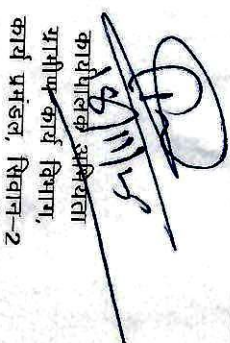 कार्यपालक अभियंता
ग्रामीण कार्य विभाग,
कार्य प्रमंडल, सिवान-2